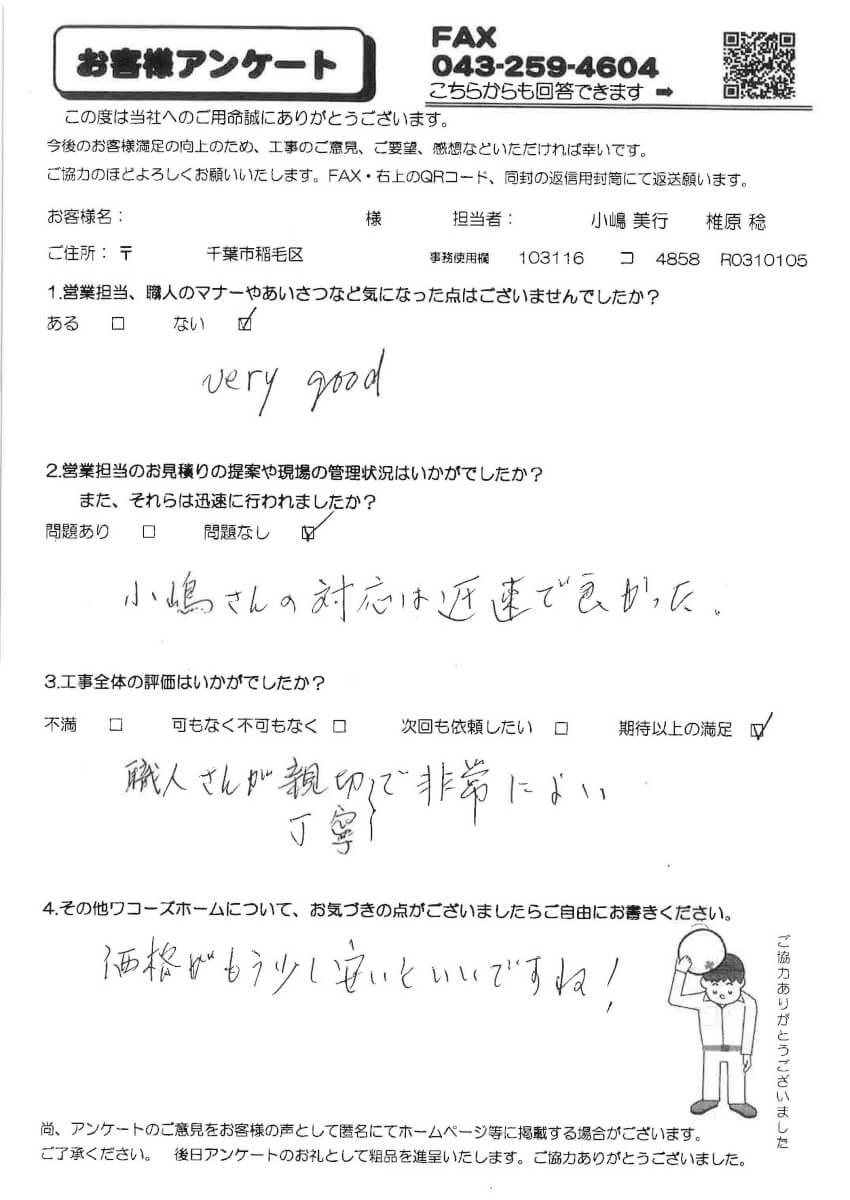 お客様アンケート
FAX
043-259-4604
こちらからも回答できます ➡
この度は当社へのご用命誠にありがとうございます。
今後のお客様満足の向上のため、工事のご意見、ご要望、感想などいただければ幸いです。
ご協力のほどよろしくお願いいたします。FAX・右上のQRコード、同封の返信用封筒にて返送願います。
お客様名： 様 担当者： 小嶋 美行 椎原 稔
ご住所：〒 千葉市稲毛区 事務使用欄 103116 コ 4858 R0310105
1.営業担当、職人のマナーやあいさつなど気になった点はございませんでしたか？
ある □ ない ☑
very good
2.営業担当のお見積りの提案や現場の管理状況はいかがでしたか？
また、それらは迅速に行われましたか？
問題あり □ 問題なし ☑
小嶋さんの対応は迅速で良かった。
3.工事全体の評価はいかがでしたか？
不満 □ 可もなく不可もなく □ 次回も依頼したい □ 期待以上の満足 ☑
職人さんが親切で非常によい
丁寧
4.その他ワコーズホームについて、お気づきの点がございましたらご自由にお書きください。
価格がもう少し安いといいですね！
ご協力ありがとうございました
尚、アンケートのご意見をお客様の声として匿名にてホームページ等に掲載する場合がございます。
ご了承ください。 後日アンケートのお礼として粗品を進呈いたします。ご協力ありがとうございました。